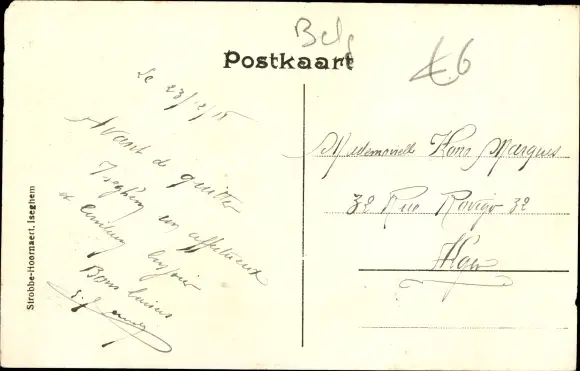 Belg
€6
Postkaart
Le 23/12/15
Avant de quitter
Iseghem un affectueux
et
Bons baisers
Mademoiselle Marques
32 Rue Rovigo 32
Alger
Strobbe-Hoornaert, Iseghem